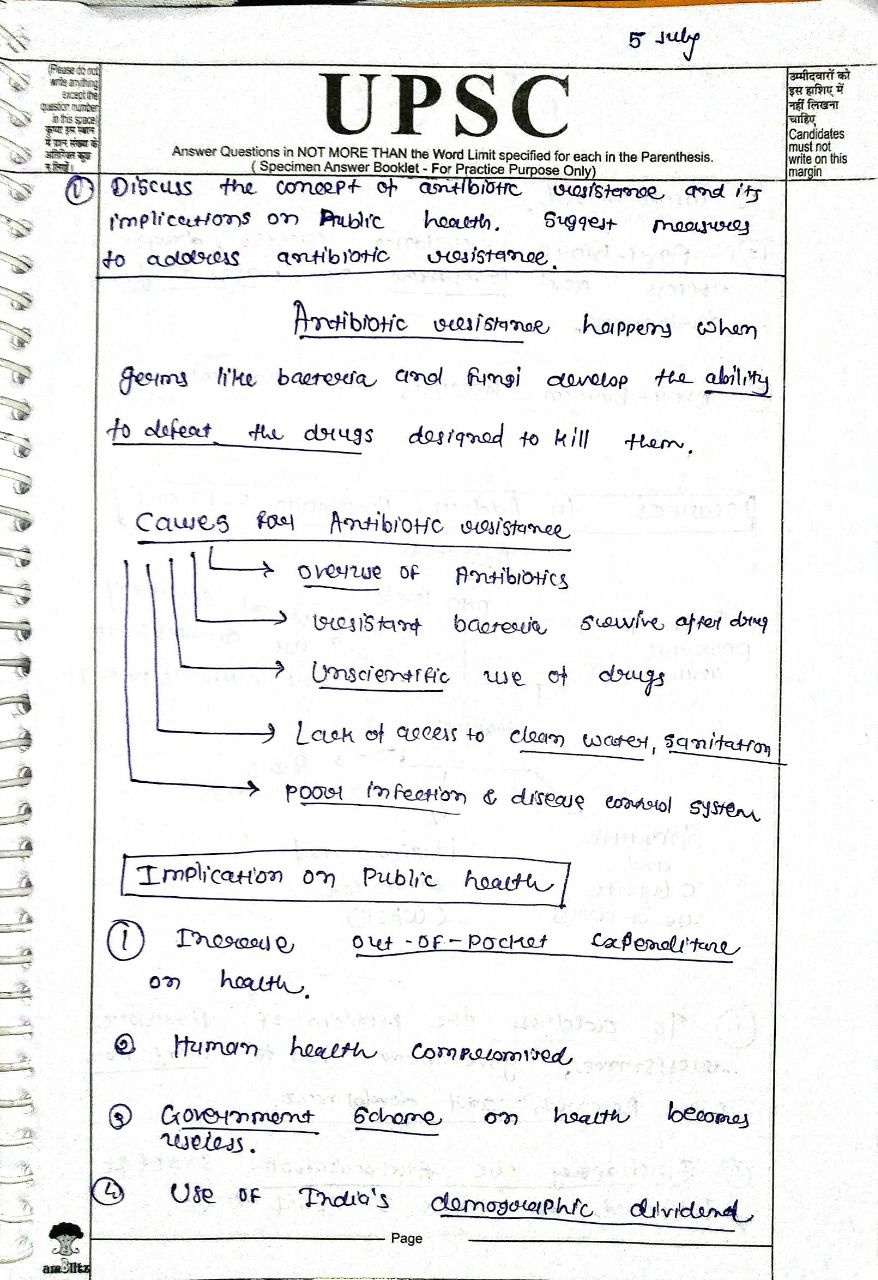 5 July
(Please do not
write anything
except the
question number
in this space)
कृपया इस स्थान
में प्रश्न संख्या के
अतिरिक्त कुछ
न लिखें।
UPSC
Answer Questions in NOT MORE THAN the Word Limit specified for each in the Parenthesis.
( Specimen Answer Booklet - For Practice Purpose Only)
उम्मीदवारों को
इस हाशिए में
नहीं लिखना
चाहिए
Candidates
must not
write on this
margin
① Discuss the concept of antibiotic resistance and its
implications on Public health. Suggest measures
to address antibiotic resistance.
Antibiotic resistance happens when
germs like bacteria and fungi develop the ability
to defeat the drugs designed to kill them.
Causes for Antibiotic resistance
→ overuse of Antibiotics
→ resistant bacteria survive after drug
→ Unscientific use of drugs
→ Lack of access to clean water, sanitation
→ poor infection & disease control system
Implication on Public health
① Increase out-of-pocket expenditure
on health.
② Human health compromised
③ Government Scheme on health becomes
useless.
④ Use of India's demographic dividend
Page
am3litz